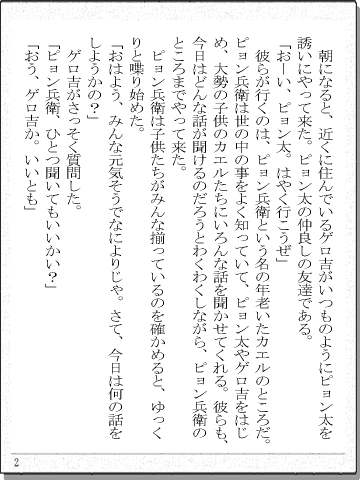 朝になると、近くに住んでいるゲロ吉がいつものようにピョン太を
誘いにやって来た。ピョン太の仲良しの友達である。
「おーい、ピョン太。はやく行こうぜ」
　彼らが行くのは、ピョン兵衛という名の年老いたカエルのところだ。
ピョン兵衛は世の中の事をよく知っていて、ピョン太やゲロ吉をはじ
め、大勢の子供のカエルたちにいろんな話を聞かせてくれる。彼らも、
今日はどんな話が聞けるのだろうとわくわくしながら、ピョン兵衛の
ところまでやって来た。
　ピョン兵衛は子供たちがみんな揃っているのを確かめると、ゆっく
りと喋り始めた。
「おはよう、みんな元気そうでなによりじゃ。さて、今日は何の話を
しようかの？」
　ゲロ吉がさっそく質問した。
「ピョン兵衛、ひとつ聞いてもいいかい？」
「おう、ゲロ吉か。いいとも」
2